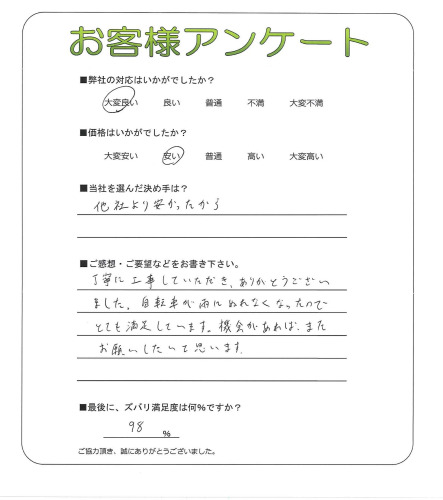 お客様アンケート
■弊社の対応はいかがでしたか？
大変良い 良い 普通 不満 大変不満
■価格はいかがでしたか？
大変安い 安い 普通 高い 大変高い
■当社を選んだ決め手は？
他社より安かったから
■ご感想・ご要望などをお書き下さい。
丁寧に工事していただき、ありがとうござい
ました。自転車が雨にぬれなくなったので
とても満足しています。機会があれば、また
お願いしたいて思います。
■最後に、ズバリ満足度は何％ですか？
98 ％
ご協力頂き、誠にありがとうございました。